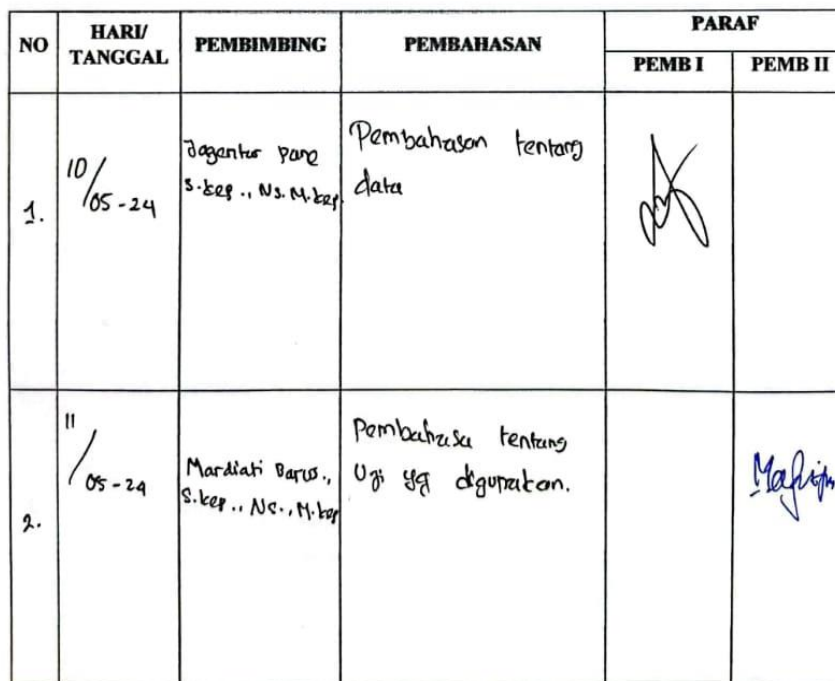 NO
HARI/
TANGGAL
PEMBIMBING
PEMBAHASAN
PARAF
PEMB I
PEMB II
1.
10/05-24
Jagentar Pane
S.kep., Ns. M.kep.
Pembahasan tentang
data
2.
11/05-24
Mardiati Barus.,
S.kep., Ns., M.kep
Pembahasa tentang
Uji yg digunakan.